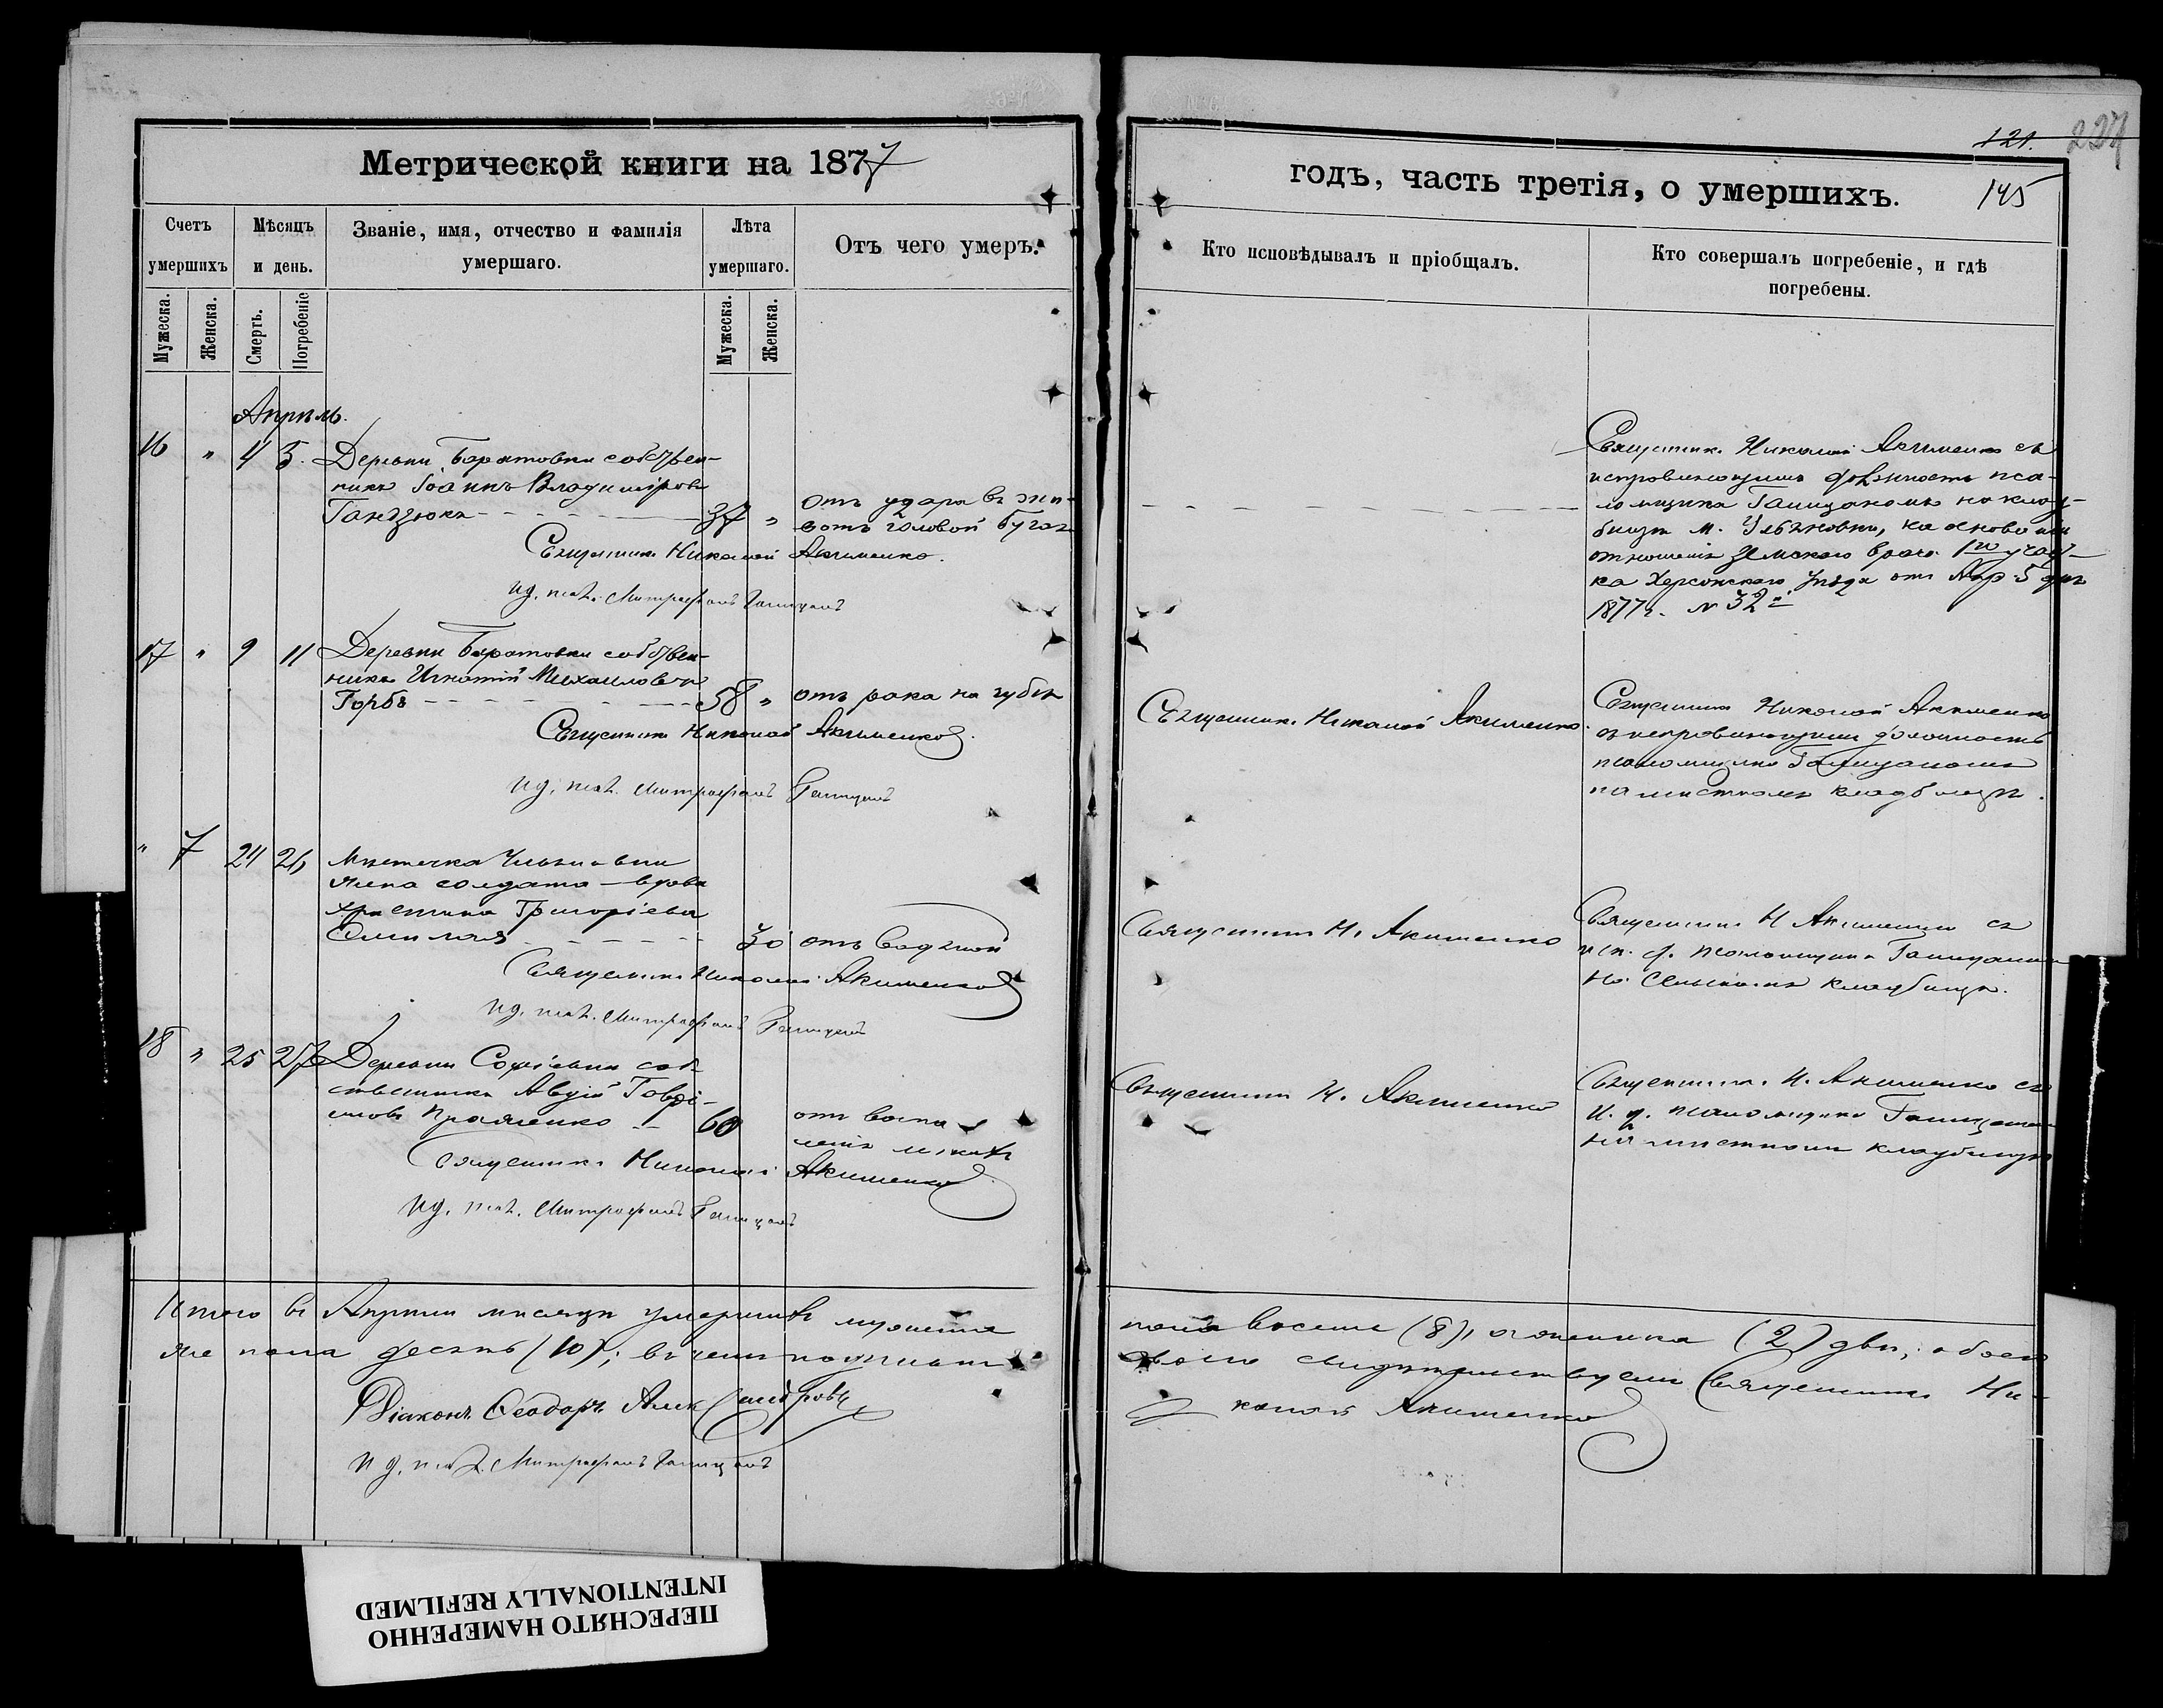 Метрической книги на 1877
Счетъ умершихъ
Мѣсяцъ и день.
Званіе, имя, отчество и фамилія умершаго.
Лѣта умершаго.
Отъ чего умеръ.
Мужеска.
Женска.
Смерть.
Погребеніе
Мужеска.
Женска.
Апрѣль.
16 " 4 5. Деревни Баратовки собствен-
никъ Іоаннъ Владиміровъ
Гандзюкъ 37 "
отъ удара въ жи-
вотъ головой бугая
Священникъ Николай Акименко.
И д. псал. Митрофанъ Галицкий
17 " 9 11 Деревни Баратовки собствен-
никъ Игнатій Михаиловъ
Горбъ 58 " отъ рака на губѣ
Священникъ Николай Акименко.
И д. псал. Митрофанъ
" 7 24 26 Мѣстечка
жена солдата вдова
Христина Григоріева
30 отъ водяной
Священникъ Николай Акименко
И д. псал. Митрофанъ
18 " 25 27 Деревни Софіевки соб-
ственникъ Авдій Гаврі-
иловъ 60
отъ воспа-
ленія
Священникъ Николай Акименко
И д. псал. Митрофанъ
Итого въ Апрѣлѣ мѣсяцѣ умершихъ
пола десять (10); въ
Діаконъ Ѳеодоръ
И д. псал. Митрофанъ
121. 227
годъ, часть третія, о умершихъ. 145
Кто исповѣдывалъ и пріобщалъ.
Кто совершалъ погребеніе, и гдѣ погребены.
Священникъ Николай Акименко съ
исправляющимъ должность пса-
ломщика на клад-
бищѣ м. на основаніи
отношенія Земскаго врача 1го участ-
ка Херсонскаго уѣзда отъ Апр. 5 дня
1877 г. № 32й
Священникъ Николай Акименко.
Священникъ Николай Акименко
съ исправляющимъ должность
псаломщика
на мѣстномъ кладбищѣ.
Священникъ Н. Акименко
Священникъ Н Акименко съ
исп. д. псаломщика
на сельскомъ кладбищѣ.
Священникъ Н. Акименко
Священникъ Н. Акименко съ
и. д. псаломщика
на мѣстномъ кладбищѣ
пола восемь (8), а женска (2) двѣ;
свидѣтельствуемъ Священникъ Ни-
колай Акименко
ПЕРЕСНЯТО НАМЕРЕННО
INTENTIONALLY REFILMED